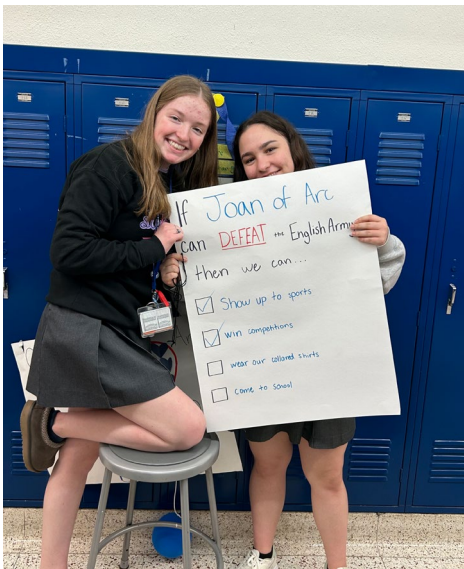 If Joan of Arc
can DEFEAT the English Army
then we can...
Show up to sports
win competitions
wear our collared shirts
come to school